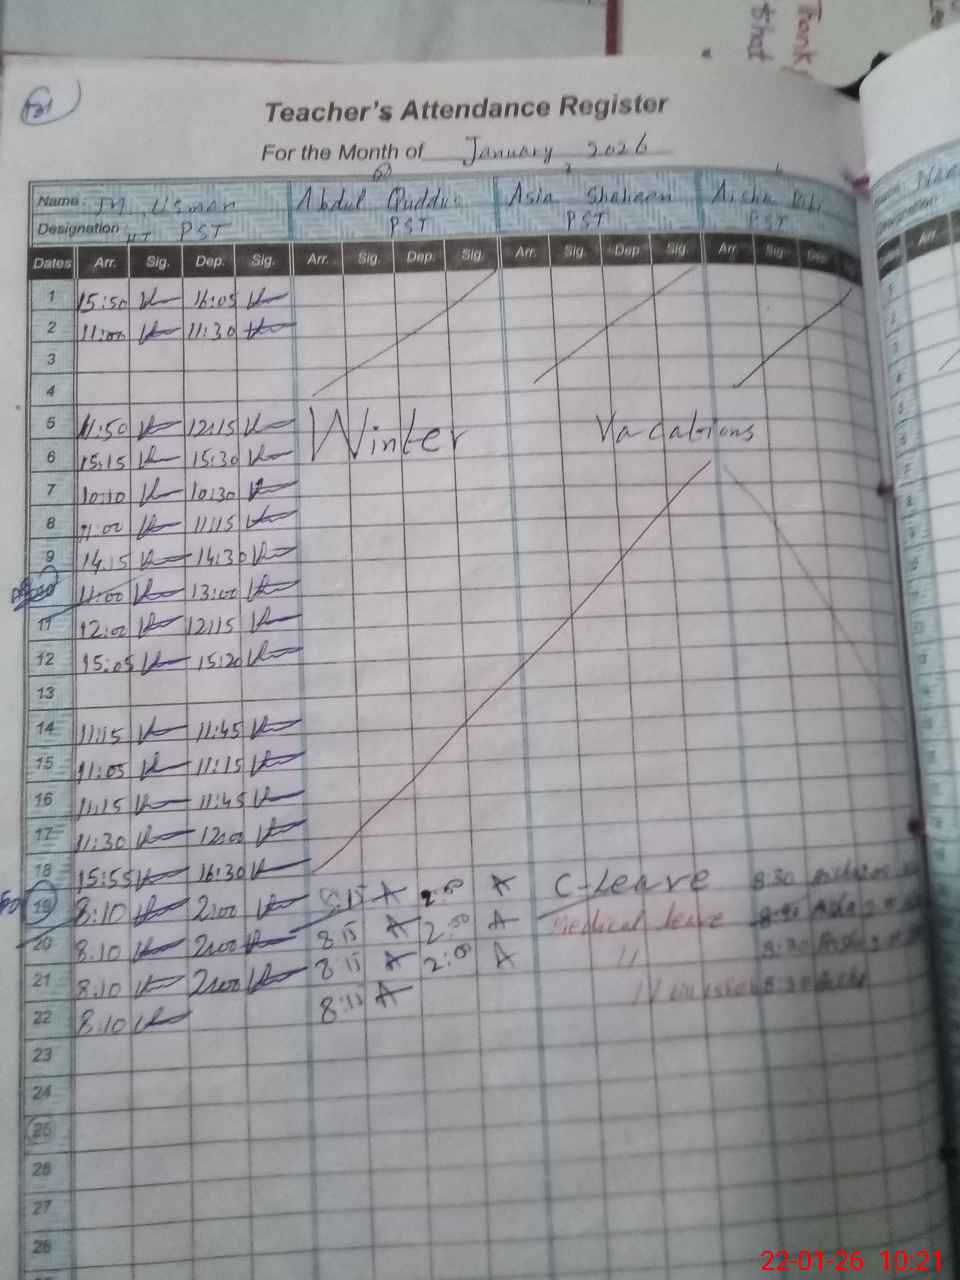 Thank
that
Teacher's Attendance Register
For the Month of January 2026
Name M. Usman Abdul Quddus Asia Shaheen Aisha Bibi
Designation HT PST PST PST PST
Dates Arr. Sig. Dep. Sig. Arr. Sig. Dep. Sig. Arr. Sig. Dep. Sig. Arr. Sig. Dep.
1 15:50 16:05
2 11:00 11:30
3
4
5 11:50 12:15 Winter Vacations
6 15:15 15:30
7 10:10 10:30
8 11:00 11:15
9 14:15 14:30
10 11:00 13:00
11 12:00 12:15
12 15:05 15:20
13
14 11:15 11:45
15 11:05 11:15
16 11:15 11:45
17 11:30 12:00
18 15:55 16:30
19 8:10 2:00 8:15 A 2:00 A C-Leave 8:30
20 8:10 2:00 8:15 A 2:00 A Medical leave
21 8:10 2:00 8:15 A 2:00 A 11 8:30
22 8:10 8:15 A 11
23
24
25
26
27
28
22-01-26 10:21